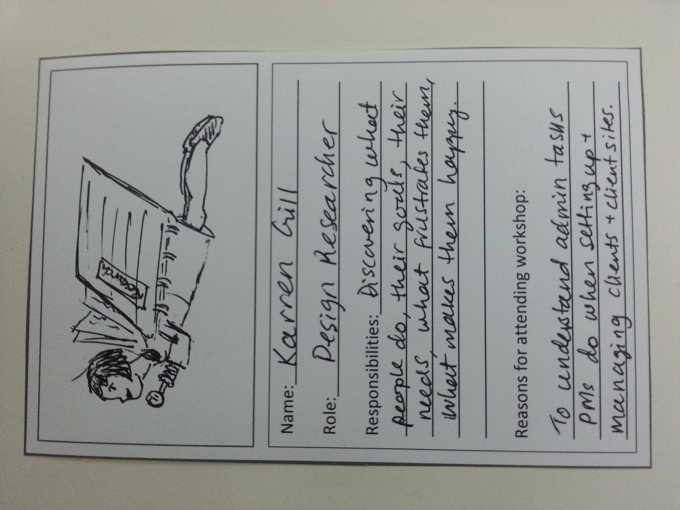 Research
Name: Karren Gill
Role: Design Researcher
Responsibilities: Discovering what
people do, their goals, their
needs, what frustrates them,
what makes them happy.
Reasons for attending workshop:
To understand admin tasks
PMs do when setting up +
managing clients + client sites.